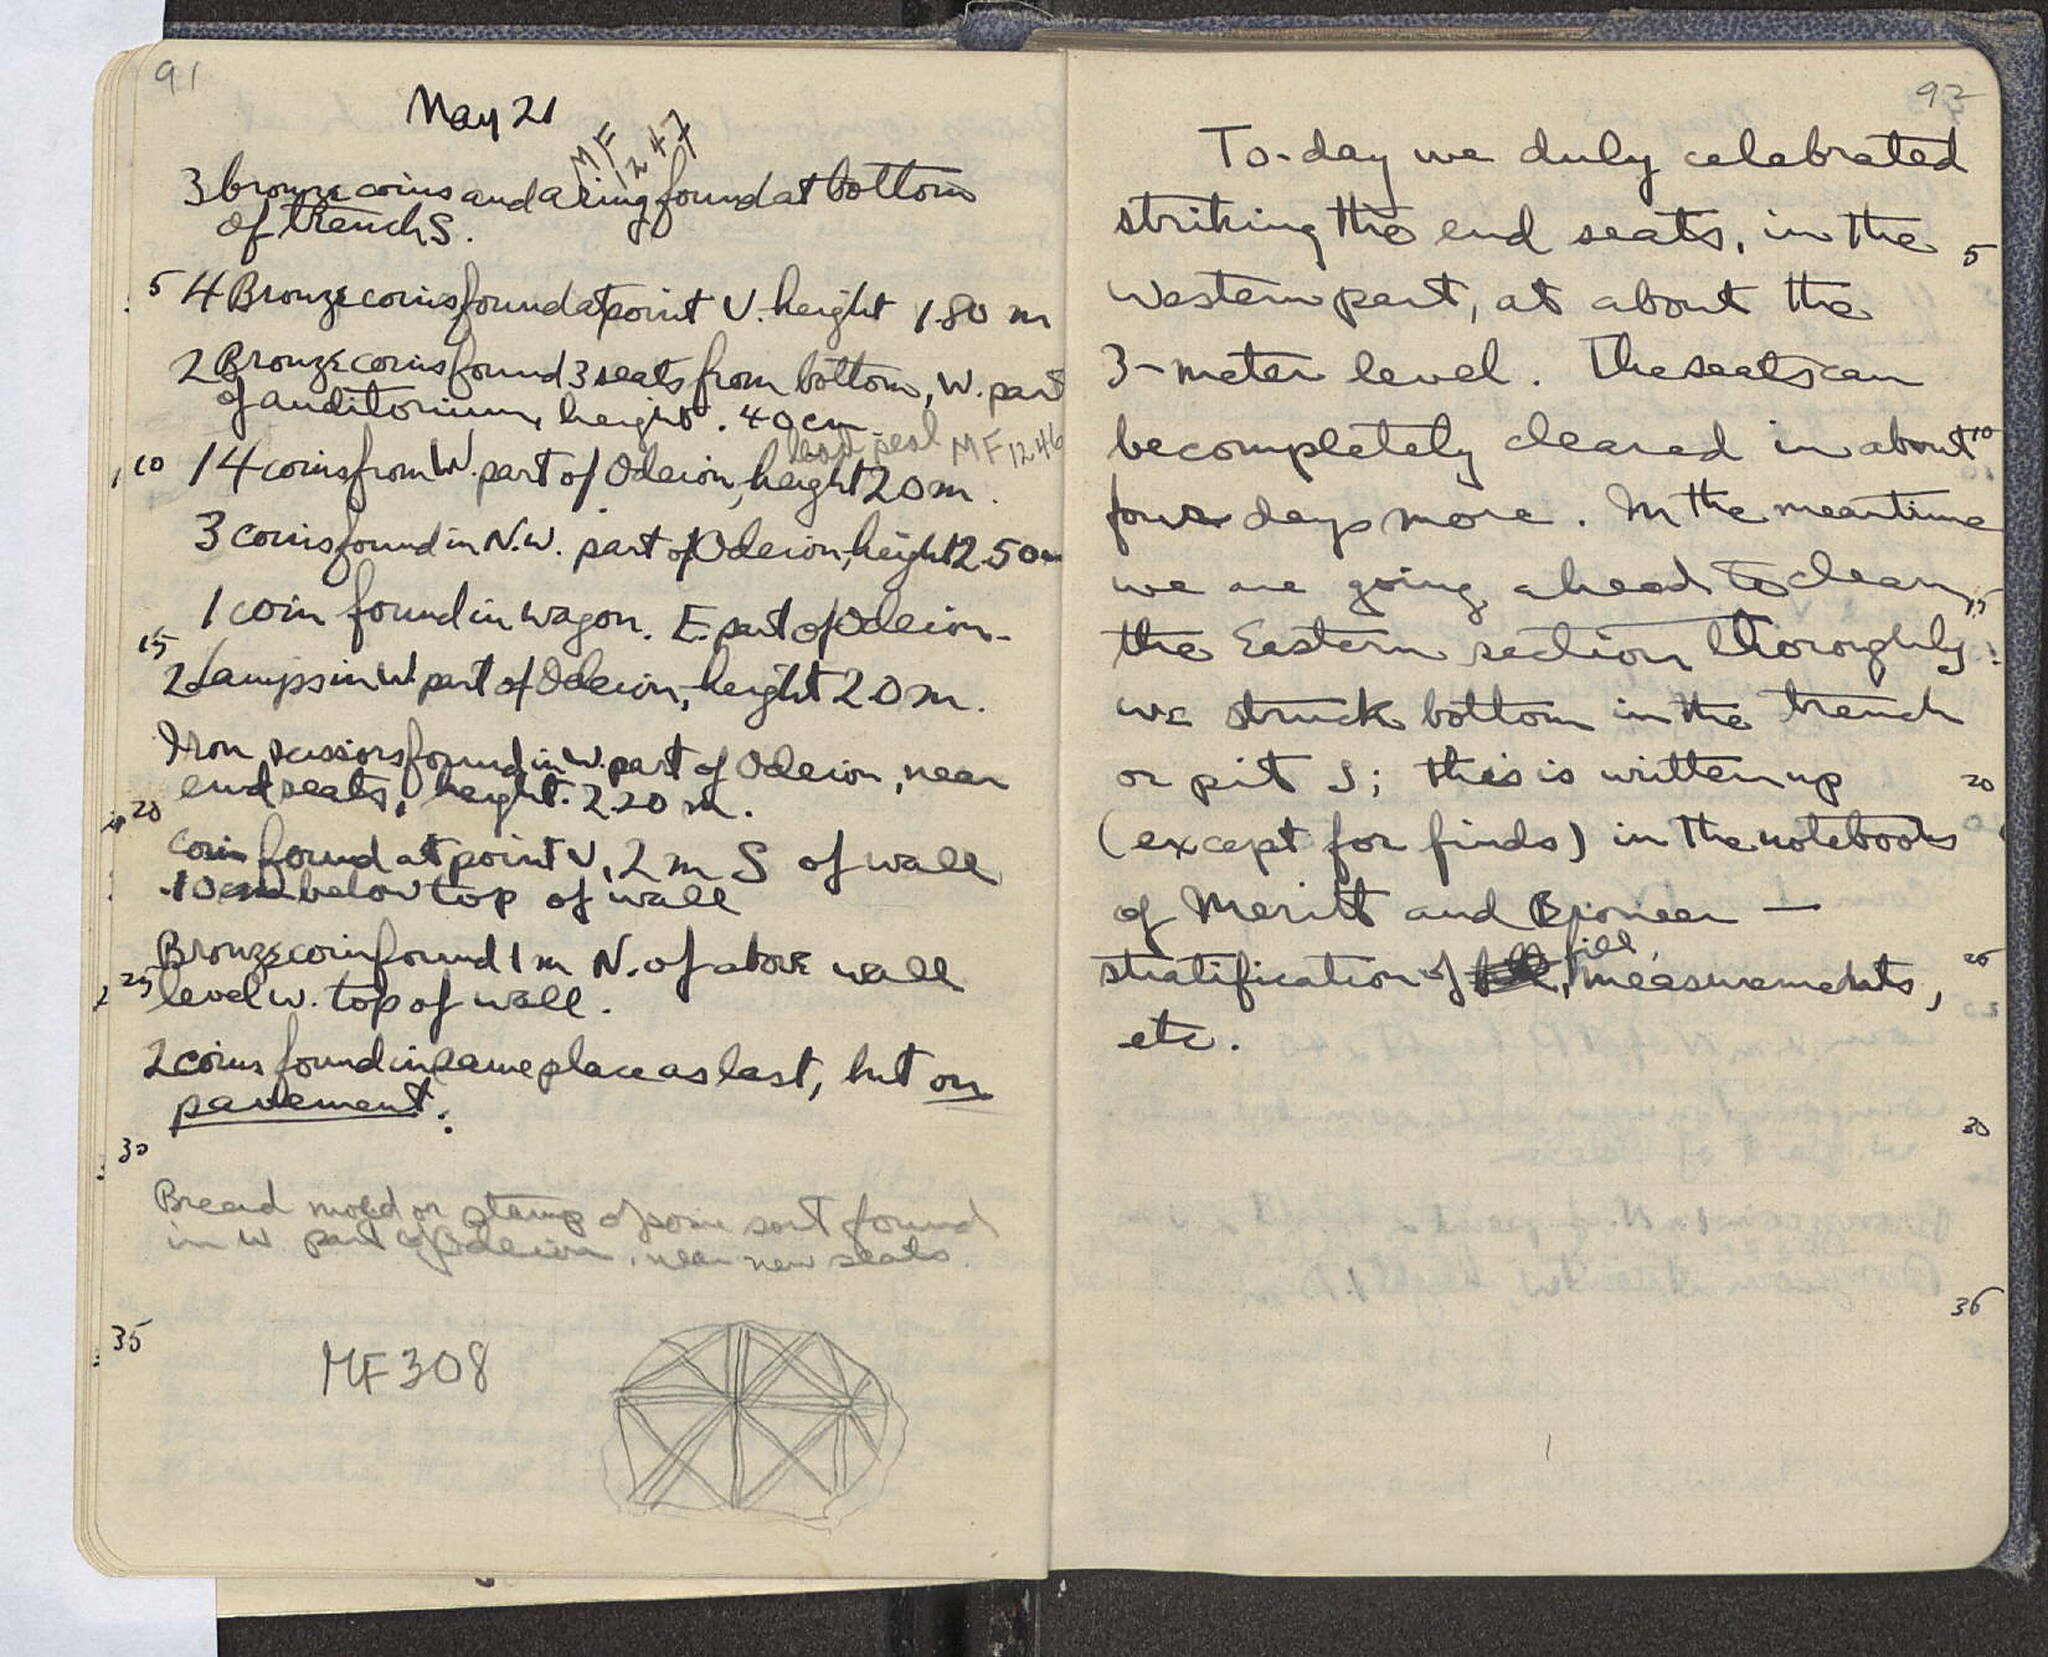 91
May 21
MF 1247
3 bronze coins and a ring found at bottom
of trench S.
5 4 Bronze coins found at point V. height 1.80 m
2 Bronze coins found 3 seats from bottom, W. part
of auditorium, height .40 cm
lead seal MF 1246
10 14 coins from W. part of Odeion, height 2.0 m.
3 coins found in N.W. part of Odeion, height 2.50 m
1 coin found in wagon. E. part of Odeion.
15
2 Lamps in W. part of Odeion, height 2.0 m.
Iron scissors found in W. part of Odeion, near
end seats, height. 2.20 m.
20
Coin found at point V, 2 m S of wall
.10 cm below top of wall
Bronze coin found 1 m N. of above wall
25 level w. top of wall.
2 coins found in same place as last, but on
pavement.
30
Bread mold or stamp of some sort found
in W part of Odeion, near new seats.
35
MF 308
92
To-day we duly celebrated
striking the end seats, in the 5
Western part, at about the
3-meter level. The seats can
be completely cleared in about 10
four days more. In the meantime
we are going ahead to clean 15
the Eastern section thoroghly.
we struck bottom in the trench
or pit S; this is written up 20
(except for finds) in the notebooks
of Meritt and Broneer —
stratification of fill, measurements, 25
etc.
30
35